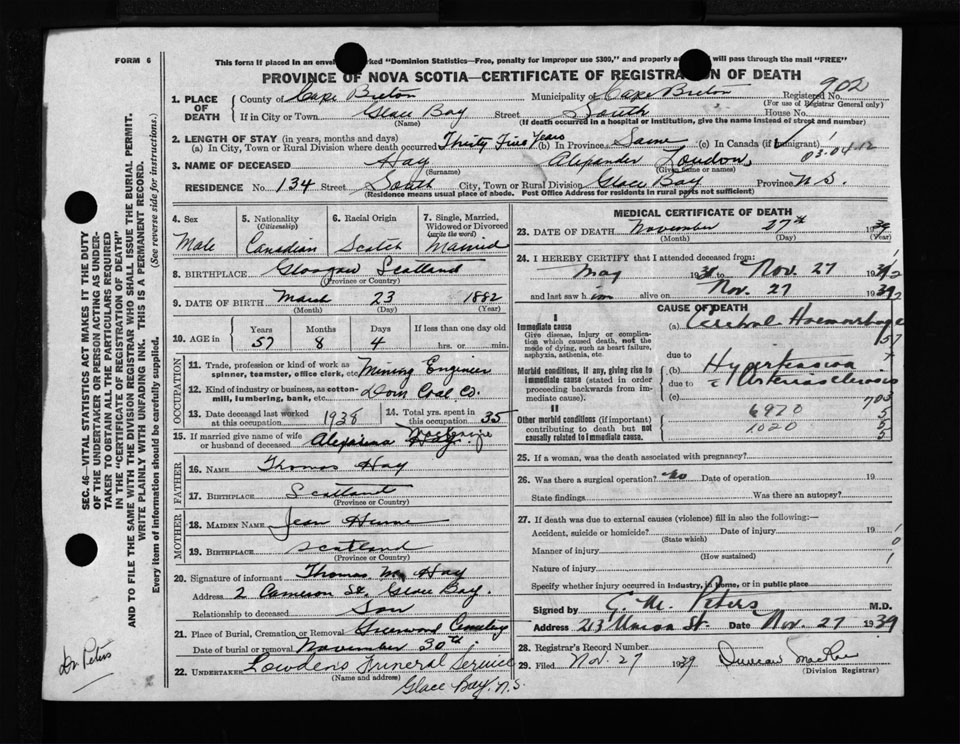 FORM 6
This form if placed in an envel ked "Dominion Statistics—Free, penalty for improper use $300," and properly a will pass through the mail "FREE"
PROVINCE OF NOVA SCOTIA—CERTIFICATE OF REGISTRATION OF DEATH
902
1. PLACE OF DEATH County of Cape Breton Municipality of Cape Breton Registered No.
(For use of Registrar General only)
If in City or Town Glace Bay Street South House No.
(Name) (If death occurred in a hospital or institution, give the name instead of street and number)
2. LENGTH OF STAY (in years, months and days)
(a) In City, Town or Rural Division where death occurred Thirty Five Years (b) In Province Same (c) In Canada (if immigrant)
03-04-12
3. NAME OF DECEASED Hay Alexander Loudon
(Surname) (Given name or names)
RESIDENCE No. 134 Street South City, Town or Rural Division Glace Bay Province N.S.
(Residence means usual place of abode. Post Office Address for residents in rural parts not sufficient)
4. Sex Male
5. Nationality (Citizenship) Canadian
6. Racial Origin Scotch
7. Single, Married, Widowed or Divorced (write the word) Married
8. BIRTHPLACE Glasgow Scotland
(Province or Country)
9. DATE OF BIRTH March 23 1882
(Month) (Day) (Year)
10. AGE in Years Months Days If less than one day old
57 8 4 hrs. or min.
OCCUPATION
11. Trade, profession or kind of work as spinner, teamster, office clerk, etc. Mining Engineer
12. Kind of industry or business, as cotton-mill, lumbering, bank, etc. Dom Coal Co.
13. Date deceased last worked at this occupation 1938
14. Total yrs. spent in this occupation 35
15. If married give name of wife or husband of deceased Alexaina Hay
FATHER
16. NAME Thomas Hay
17. BIRTHPLACE Scotland
(Province or Country)
MOTHER
18. MAIDEN NAME Jean
19. BIRTHPLACE Scotland
(Province or Country)
20. Signature of informant Thomas M. Hay
Address 2 Cameron St. Glace Bay.
Relationship to deceased Son
21. Place of Burial, Cremation or Removal Greenwood Cemetery
Date of burial or removal November 30th
22. UNDERTAKER Lowden's Funeral Service
(Name and address)
Glace Bay, N.S.
MEDICAL CERTIFICATE OF DEATH
23. DATE OF DEATH November 27th 1939
(Month) (Day) (Year)
24. I HEREBY CERTIFY that I attended deceased from:
May 193 to Nov. 27 1939
and last saw him alive on Nov. 27 1939
CAUSE OF DEATH
I
Immediate cause
Give disease, injury or complication which caused death, not the mode of dying, such as heart failure, asphyxia, asthenia, etc.
(a) Cerebral Haemorrhage
157
Morbid conditions, if any, giving rise to immediate cause (stated in order proceeding backwards from immediate cause).
due to Hypertension
due to Arteriosclerosis
(c) 703
II
Other morbid conditions (if important) contributing to death but not causally related to immediate cause.
6920
1020
5
5
5
25. If a woman, was the death associated with pregnancy?
26. Was there a surgical operation? No Date of operation 19
State findings Was there an autopsy?
27. If death was due to external causes (violence) fill in also the following:—
Accident, suicide or homicide? Date of injury 19
(State which)
Manner of injury
(How sustained)
Nature of injury
Specify whether injury occurred in industry, in home, or in public place
Signed by C. M. Peters M.D.
Address 213 Union St. Date Nov. 27 1939
28. Registrar's Record Number
29. Filed Nov. 27 1939 Duncan MacRae
(Division Registrar)
SEC. 46—VITAL STATISTICS ACT MAKES IT THE DUTY
OF THE UNDERTAKER OR PERSON ACTING AS UNDER-
TAKER TO OBTAIN ALL THE PARTICULARS REQUIRED
IN THE "CERTIFICATE OF REGISTRATION OF DEATH"
AND TO FILE THE SAME WITH THE DIVISION REGISTRAR WHO SHALL ISSUE THE BURIAL PERMIT.
WRITE PLAINLY WITH UNFADING INK. THIS IS A PERMANENT RECORD.
Every item of information should be carefully supplied. (See reverse side for instructions.)
Dr. Peters